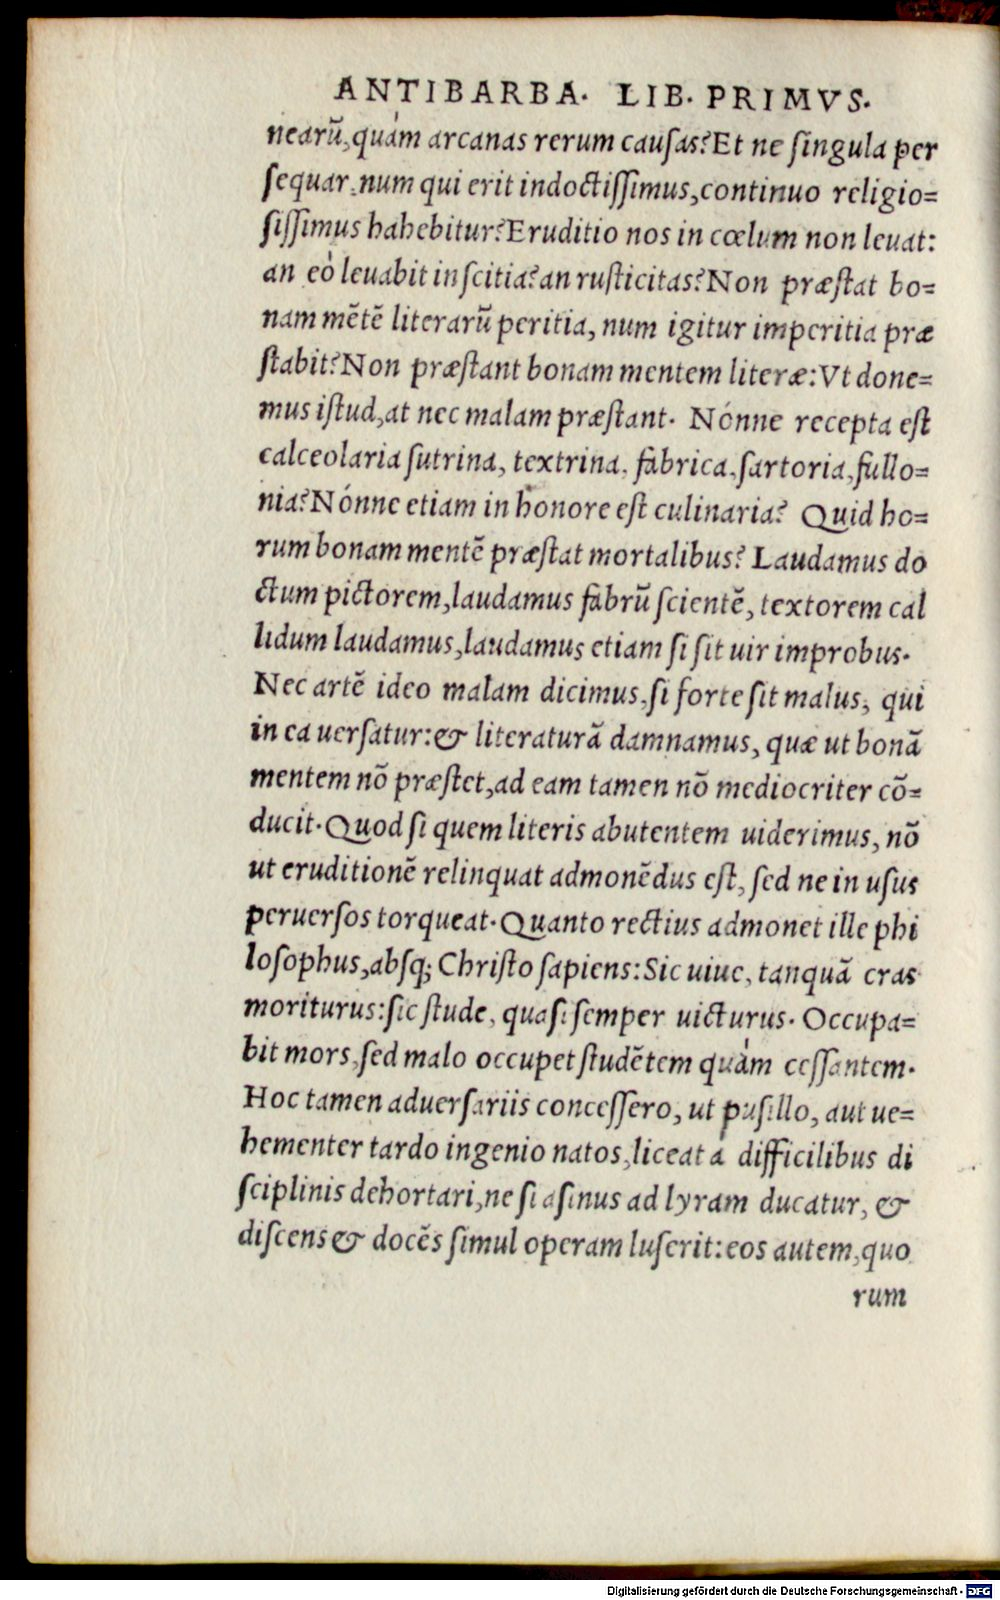 ANTIBARBA. LIB. PRIMVS.
nearũ, quàm arcanas rerum cauſas? Et ne ſingula per
ſequar, num qui erit indoctiſſimus, continuo religio=
ſiſſimus hahebitur? Eruditio nos in cœlum non leuat:
an eò leuabit inſcitia? an ruſticitas? Non præſtat bo=
nam mẽtẽ literarũ peritia, num igitur imperitia præ
ſtabit? Non præſtant bonam mentem literæ: Vt done=
mus iſtud, at nec malam præſtant. Nónne recepta eſt
calceolaria ſutrina, textrina, fabrica, ſartoria, fullo=
nia? Nónne etiam in honore eſt culinaria? Quid ho=
rum bonam mentẽ præſtat mortalibus? Laudamus do
ctum pictorem, laudamus fabrũ ſcientẽ, textorem cal
lidum laudamus, laudamus etiam ſi ſit uir improbus.
Nec artẽ ideo malam dicimus, ſi forte ſit malus, qui
in ea uerſatur: & literaturã damnamus, quæ ut bonã
mentem nõ præſtet, ad eam tamen nõ mediocriter cõ=
ducit. Quod ſi quem literis abutentem uiderimus, nõ
ut eruditionẽ relinquat admonẽdus eſt, ſed ne in uſus
peruerſos torqueat. Quanto rectius admonet ille phi
loſophus, abſq; Chriſto ſapiens: Sic uiue, tanquã cras
moriturus: ſic ſtude, quaſi ſemper uicturus. Occupa=
bit mors, ſed malo occupet ſtudẽtem quàm ceſſantem.
Hoc tamen aduerſariis conceſſero, ut puſillo, aut ue=
hementer tardo ingenio natos, liceat à difficilibus di
ſciplinis dehortari, ne ſi aſinus ad lyram ducatur, &
diſcens & docẽs ſimul operam luſerit: eos autem, quo
rum
Digitalisierung gefördert durch die Deutsche Forschungsgemeinschaft - DFG